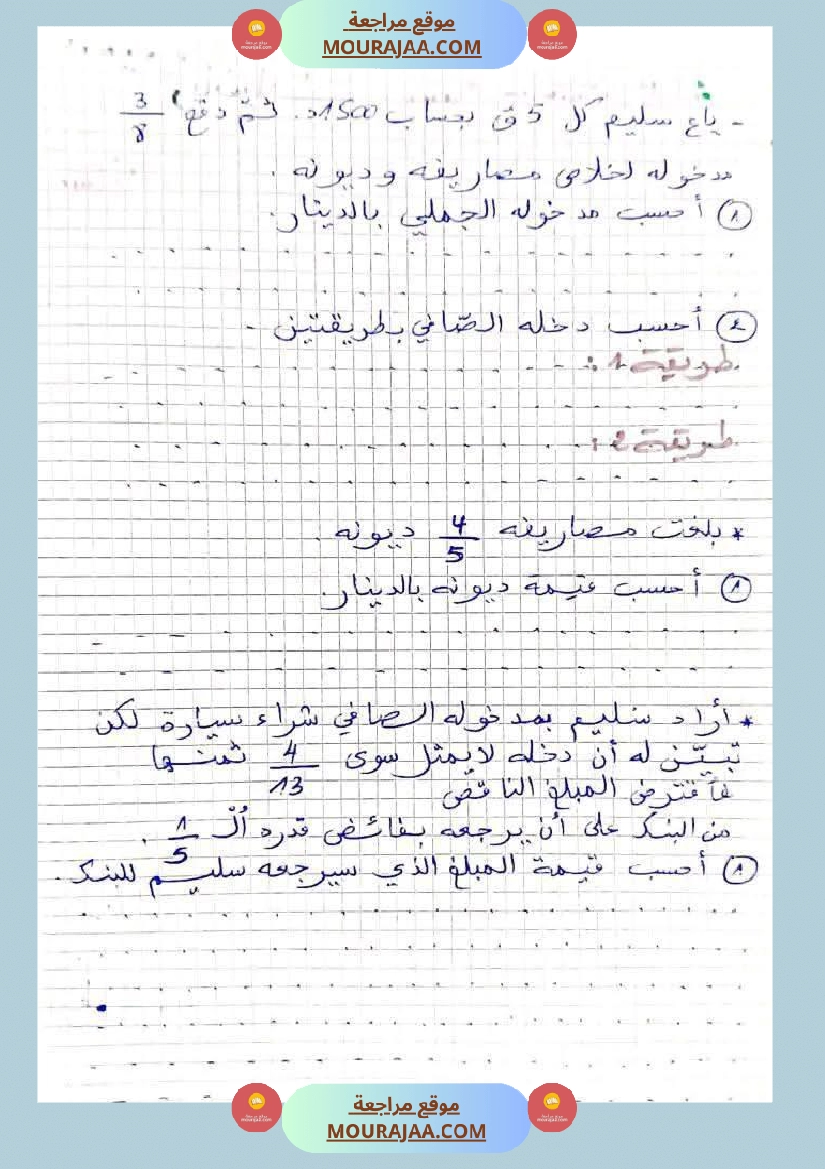 موقع مراجعة
MOURAJAA.COM
- باع سليم كل 5 ق بحساب 1500د. ثمّ دفع 3/8
مدخوله لخلاص مصاريفه وديونه.
1 أحسب مدخوله الجملي بالدينار.
2 أحسب دخله الصّافي بطريقتين.
طريقة 1:
طريقة 2:
* بلغت مصاريفه 4/5 ديونه.
1 أحسب قيمة ديونه بالدينار.
* أراد سليم بمدخوله الصافي شراء سيارة لكن
تبيّن له أن دخله لا يمثل سوى 4/13 ثمنها
فاقترض المبلغ الناقص
من البنك على أن يرجعه بفائض قدره الـ 1/5.
1 أحسب قيمة المبلغ الذي سيرجعه سليم للبنك.
موقع مراجعة
MOURAJAA.COM